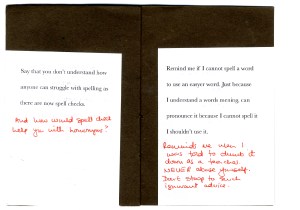 Say that you don't understand how
anyone can struggle with spelling as
there are now spell checks.
And how would spell check
help you with homonyms?
Remind me if I cannot spell a word
to use an easier word. Just because
I understand a words meaning, can
pronounce it because I cannot spell it
I shouldn't use it.
Reminds me when I
was told to dumb it
down as a teacher.
NEVER abuse yourself.
Don't stoop to such
ignorant advice.